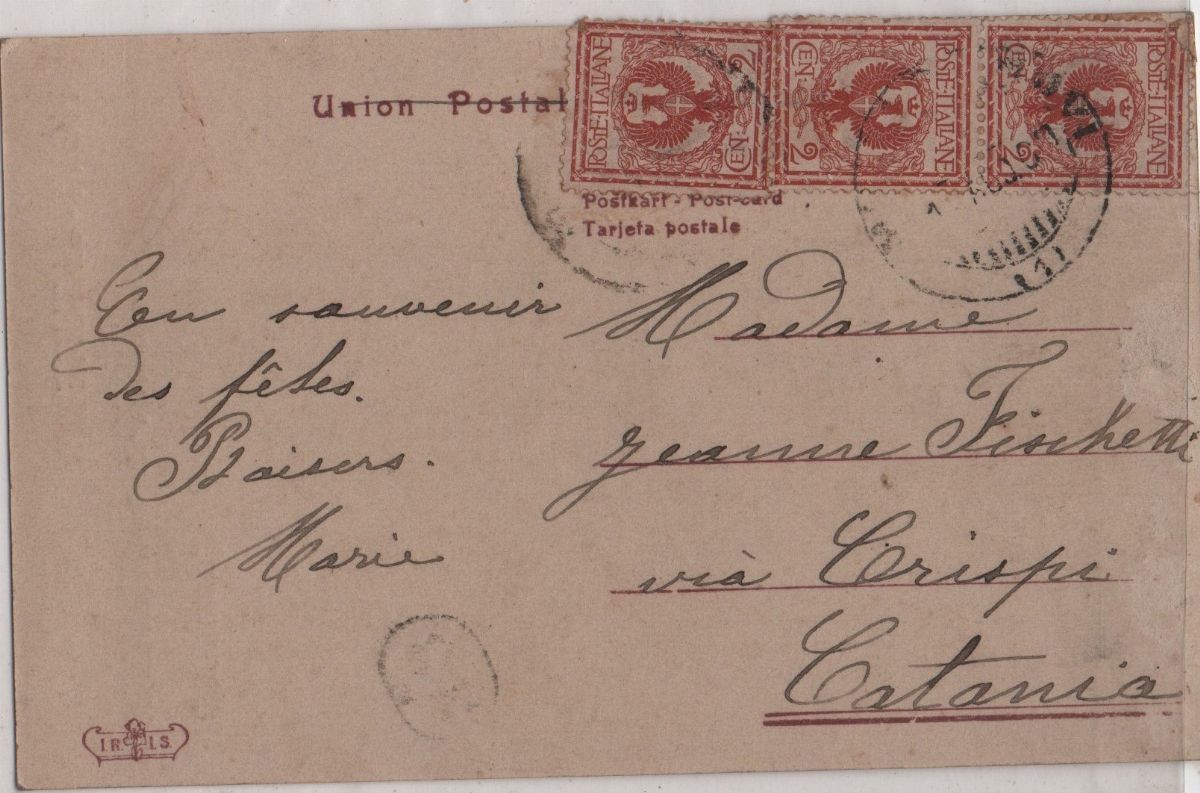 Union Postal
POSTE·ITALIANE
CEN. 2
POSTE·ITALIANE
CEN. 2
POSTE·ITALIANE
2
Postkart - Post-card
Tarjeta postale
En souvenir
des fêtes.
Baisers.
Marie
Madame
Jeanne Fischetti
vià Crispi
Catania
I.R. I.S.